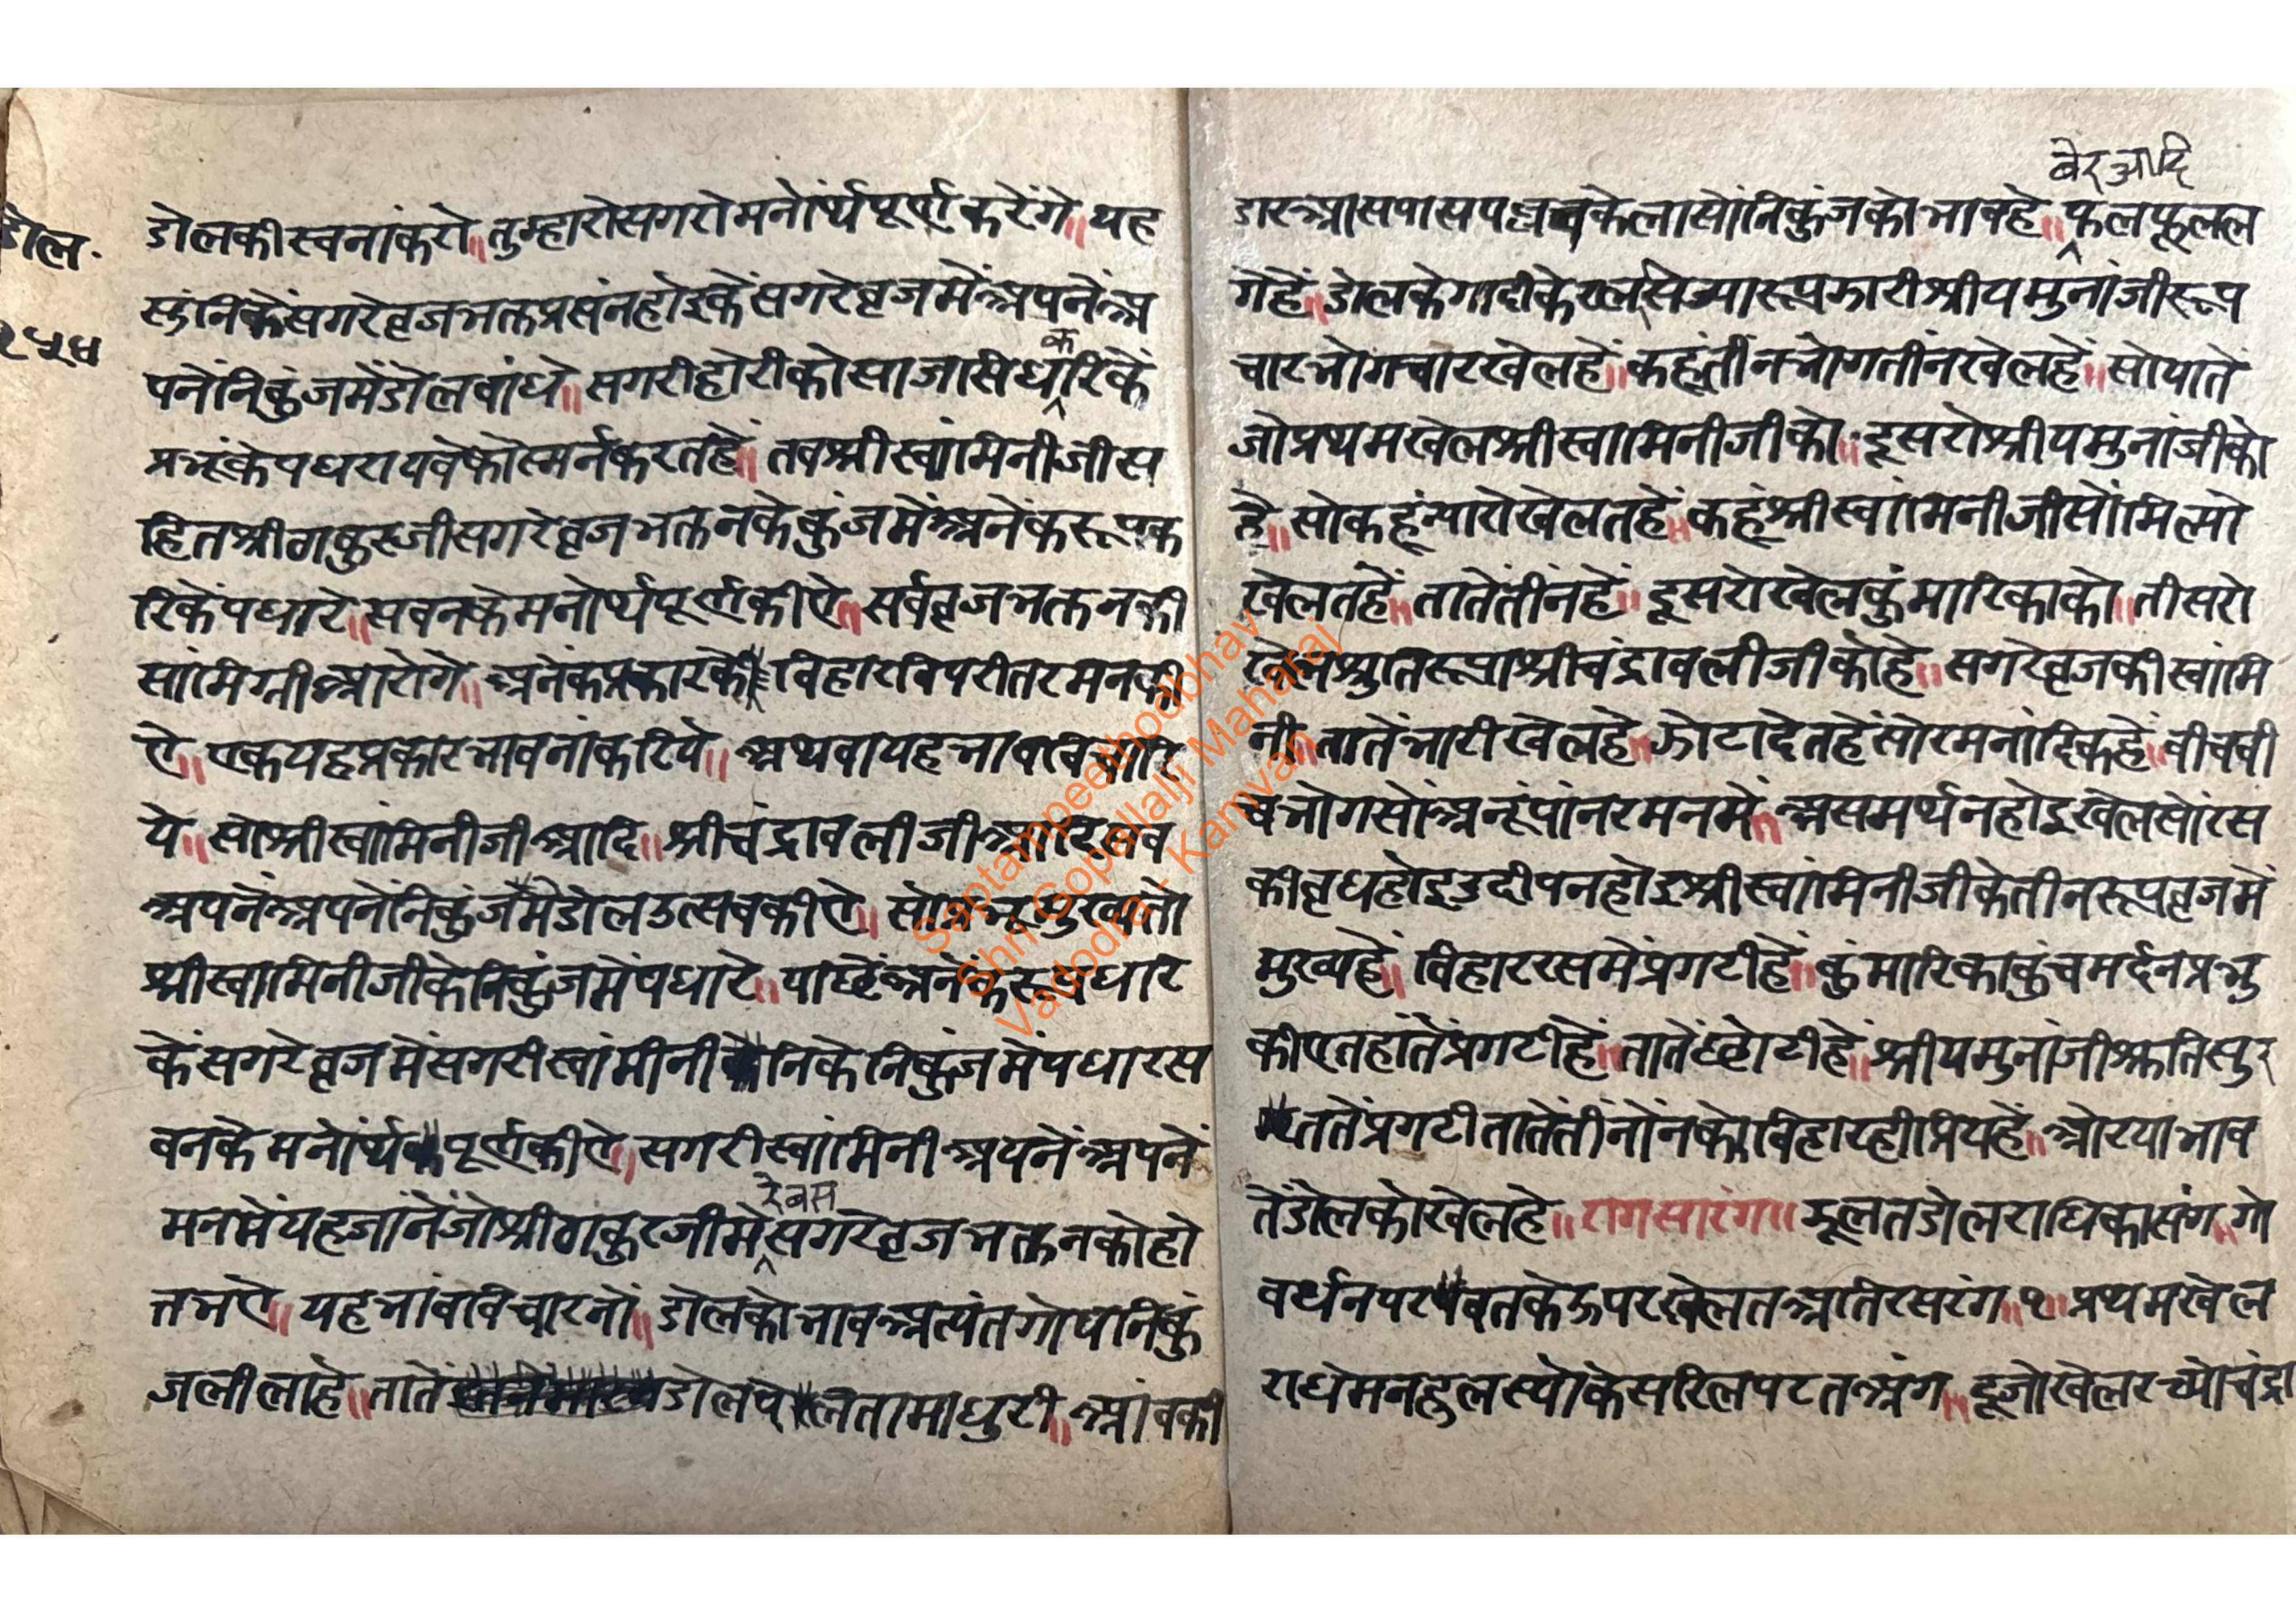 डोल.
२५४
डोलकीरचनांकरो॥तुम्हारोसगरोमनोर्थपूर्णकरेंगे॥यह
सुंनिकेंसगरेव्रजभक्तप्रसंनहोइकेंसगरेव्रजमेंअपनेंअ
पनेंनिकुंजमेंडोलबांधे॥सगरीहोरीकोसाजसिधकरिकें
प्रभूंकेपधरायवेकोस्मर्नकरतहें॥तबश्रीस्वांमिनीजीस
हितश्रीठाकुरजीसगरेव्रजभक्तनकेकुंजमेंअनेंकरूपक
रिकेंपधारे॥सबनकेमनोर्थपूर्णकीऐ॥सर्वव्रजभक्तनकी
सांमिग्रीआरोगे॥अनेंकप्रकारकेविहारविपरीतरमनकी
ऐ॥एकयहप्रकारभावनांकरिये॥अथवायहभावविचारि
ये॥सोश्रीस्वांमिनीजीआदि॥श्रीचंद्रावलीजीआदिसब
अपनेंअपनेंनिकुंजमेंडोलउत्सवकीऐ॥सोप्रभूमुख्यतो
श्रीस्वामिनीजीकेनिकुंजमेंपधारे॥पाछेंअनेंकरूपधारि
केंसगरेव्रजमेंसगरीस्वांमीनीनिकेनिकुंजमेंपधारस
बनकेमनोर्थपूर्णकीऐ॥सगरीस्वांमिनीअपनेंअपनें
रेबस
मनमेंयहजांनेंजोश्रीठाकुरजीमेसगरेव्रजभक्तनकोहो
तभऐ॥यहभांवविचारनों॥डोलकोभावअत्यंतगोप्यनिकुं
जलीलाहे॥तातेंडोलपेंलतामाधुरी॥आंबकी
बेरआदि
डारआसपासपल्लवकेलासोंनिकुंजकोभावहे॥फलफूलल
गेहें॥डोलकेगादीकेसेज्यारूपझारीश्रीयमुनांजीरूप
चारभोगचारखेलहें॥कहूंतीनभोगतीनखेलहें॥सोयातें
जोप्रथमखेलश्रीस्वामिनीजीको॥दूसरोश्रीयमुनांजीको
हे॥सोकहूंन्यारोखेलतहें॥कहूंश्रीस्वांमिनीजीसोंमिल्यो
खेलतहें॥तातेंतीनहें॥दूसरोखेलकुंमारिकाको॥तीसरो
खेलश्रुतिरूपाश्रीचंद्रावलीजीकोहे॥सगरेव्रजकीस्वांमि
नी॥तातेंभारीखेलहे॥झोटादेतहेंसोरमनांदिकहें॥बीचबी
चभोगसोंअनूंपांनरमनमें॥असमर्थनहोइखेलसोंरस
कीवृधहोइउदीपनहोइश्रीस्वांमिनीजीकेतीनरूपव्रजमें
मुख्यहें॥विहाररसमेंप्रगटीहें॥कुंमारिकाकुंचमर्दनप्रभु
कीऐतहांतेंप्रगटीहें॥तातेंछोटीहें॥श्रीयमुनांजीअतिसुर
ततेंप्रगटीतातेंतीनोंनकोविहारहीप्रियहें॥ओरयाभाव
तेंडोलकोखेलहे॥रागसारंग॥झूलतडोलराधिकासंग॥गो
वर्धनपरवतकेऊपरखेलतअतिरसरंग॥१॥प्रथमखेल
राधेमनहुलस्योकेसरिलपटतअंग॥दूजोखेलरच्योचंद्रा
Saptampeethodbhav
Shri Gopallalji Maharaj
Vadodra - Kamvan